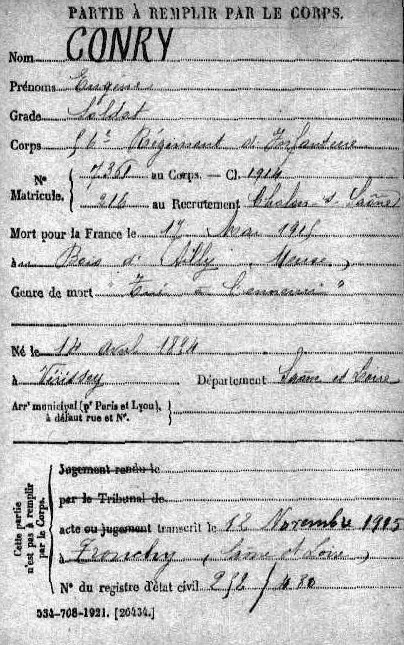 PARTIE À REMPLIR PAR LE CORPS.
Nom CONRY
Prénoms Eugène
Grade Soldat
Corps 56e Régiment d'Infanterie
No Matricule. 7360 au Corps. — Cl. 1914
216 au Recrutement Chalon-s-Saône
Mort pour la France le 17 Mai 1915
à Bois d'Ailly, Meuse,
Genre de mort "Tué à l'ennemi"
Né le 14 avril 1894
à Vérissey Département Saône et Loire
Arrt municipal (pr Paris et Lyon), à défaut rue et No.
Cette partie n'est pas à remplir par le Corps.
Jugement rendu le
par le Tribunal de
acte ou jugement transcrit le 12 Novembre 1915
à Tronchy, Saône et Loire,
No du registre d'état civil
534-708-1921. [26434.]